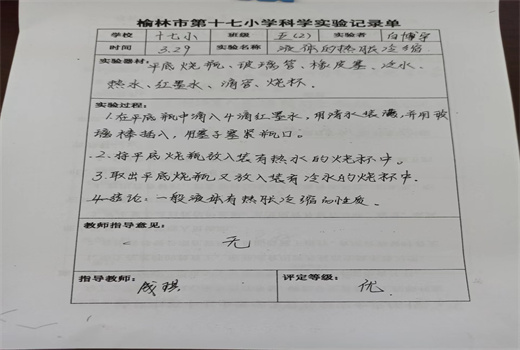 榆林市第十七小学科学实验记录单
学校 十七小 班级 五(2) 实验者 白博宇
时间 3.29 实验名称 液体的热胀冷缩
实验器材:平底烧瓶、玻璃管、橡皮塞、冷水、
热水、红墨水、滴管、烧杯.
实验过程:
1.在平底瓶中滴入4滴红墨水,用清水装满,并用玻
璃棒插入,用塞子塞紧瓶口.
2.将平底烧瓶放入装有热水的烧杯中。
3.取出平底烧瓶又放入装有冷水的烧杯中.
4.结论:一般液体有热胀冷缩的性质.
教师指导意见:
无
指导教师: 成琪 评定等级: 优